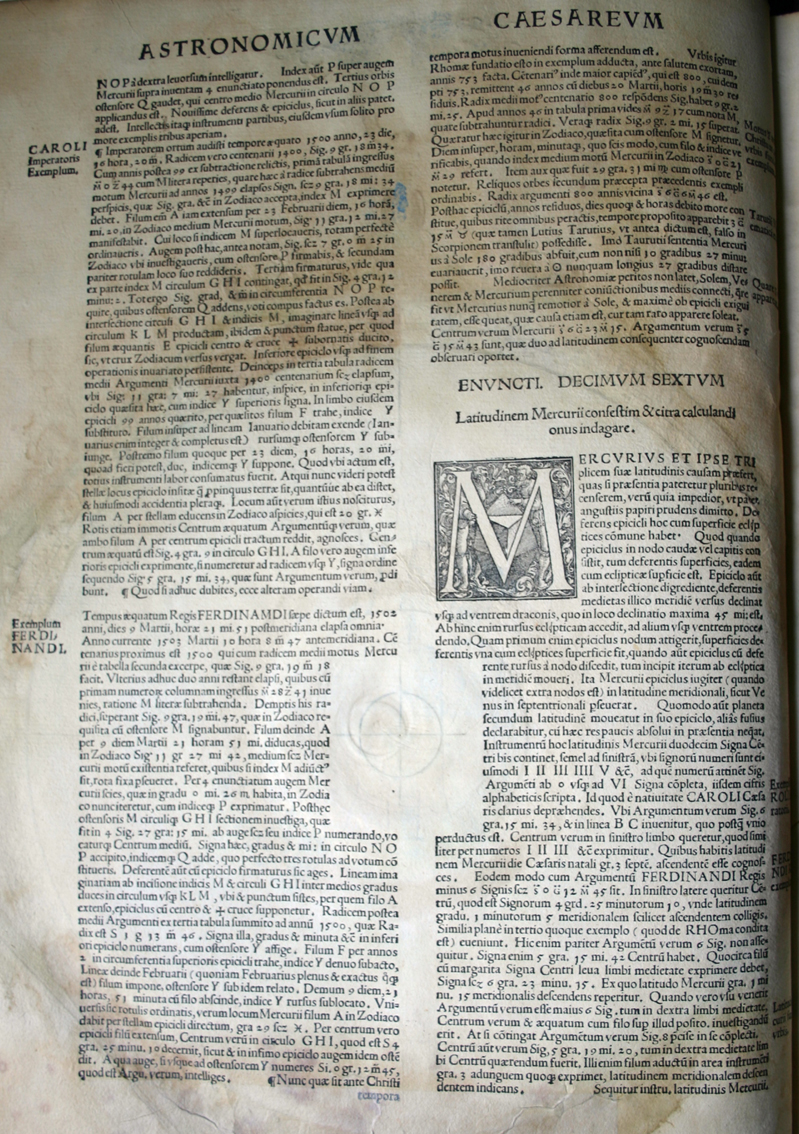 ASTRONOMICVM
N O P à dextra leuorsum intelligatur. Index aūt P super augem
Mercurii supra inuentam 4 enunciato ponendus est. Tertius orbis
ostensore Q gaudet, qui centro medio Mercurii in circulo N O P
applicandus est. Nouissime deferens & epiciclus, sicut in aliis patet,
adest. Intellectis itaq instrumenti partibus, eiusdem vsum solito pro
more exemplis tribus aperiam.
CAROLI
Imperatoris
Exemplum.
¶ Imperatorem ortum audisti tempore æquato 1500 anno, 23 die,
16 hora, 20 m. Radicem vero centenarii 1400, Sig. 9 gr. 18 m 34.
Cum annis postea 99 ex subtractione relictis, prima tabula ingressus
M litera reperies, quare hæc à radice subtrahens mediū
motum Mercurii ad annos 1499 elapsos Sign. scz 9 gra. 18 mi: 34
perspicis, quæ Sig. gra: &c in Zodiaco accepta, index M exprimere
debet. Filum em A iam extensum per 23 Februarii diem, 16 hora,
mi. 20, in Zodiaco medium Mercurii motum, Sig 11 gra. 12 mi. 27
manifestabit. Cui loco si indicem M superlocaueris, rotam perfecte
ordinaueris. Augem post hac, antea notam, Sig. scz 7 gr. 0 m 25 in
Zodiaco vbi inuestigaueris, cum ostensore P firmabis, & secundam
pariter rotulam loco suo reddideris. Tertiam firmaturus, vide qua
ex parte index M circulum G H I contingat, qd fit in Sig. 4 gra. 12
minu: 2. Totergo Sig. grad, & m in circumferentia N O P re-
quire, quibus ostensorem Q addens, voti compos factus es. Postea ab
intersectione circuli G H I & indicis M, imaginare linea vsq ad
circulum K L M productam, ibidem & punctum statue, per quod
filum æquantis E epicicli centro & cruce ✢ subornatis ducito,
sic, vt crux Zodiacum versus vergat. Inferiore epiciclo vsq ad finem
operationis inuariato persistente. Deinceps in tertia tabula radicem
medii Argumenti Mercurii iuxta 1400 centenarium scz elapsum,
vbi Sig: 11 gra: 7 mi: 27 habentur, inspice, in inferioriq epi-
ciclo quæsita hæc, cum indice Y superioris signa. In limbo eiusdem
epicicli 99 annos quærito, per quælitos filum F trahe, indice Y
substituto. Filum insuper ad lineam Ianuario debitam exende (Ian-
uarius enim integer & completus est) rursumq ostensorem Y sub-
iunge. Postremo filum quoque per 23 diem, 16 horas, 20 mi,
quoad fieri potest, duc, indicemq Y suppone. Quod vbi actum est,
totius instrumenti labor consumatus fuerit. Atqui nunc videri potest
stellæ locus epiciclo insitæ q̄ ppinquus terræ sit, quantūue ab ea distet,
& huiusmodi accidentia pleraq. Locum aūt verum istius nosciturus,
filum A per stellam educens in Zodiaco aspicies, qui est 20 gr. ♓
Rotis etiam immotis Centrum æquatum Argumentūq verum, quæ
ambo filum A per centrum epicicli tractum reddit, agnosces. Cen-
trum æquatū est Sig. 4 gra. 9 in circulo G H I. A filo vero augem infe
rioris epicicli exprimente, si numeretur ad radicem vsq Y, signa ordine
sequendo Sig 5 gra. 15 mi. 34, quæ sunt Argumentum verum, pdi
bunt. ¶ Quod si adhuc dubites, ecce alteram operandi viam.
Exemplum
FERDI
NANDI.
Tempus æquatum Regis FERDINANDI sæpe dictum est, 1502
anni, dies 9 Martii, hora: 21 mi. 51 postmeridiana elapsa omnia·
Anno currente 1503 Martii 10 hora 8 m 47 antemeridiana. Cē
tenarius proximus est 1500 qui cum radicem medii motus Mercu
rii è tabella secunda excerpe, quæ Sig. 9 gra. 19 m 18
facit. Vlterius adhuc duo anni restant elapsi, quibus cū
primam numerorum columnam ingressus inue
nies, ratione M literæ subtrahenda. Demptis his ra-
dici, superant Sig. 9 gra. 19 mi. 47, quæ in Zodiaco re-
quisita cū ostensore M signabuntur. Filum deinde A
per 9 diem Martii 21 horam 51 mi. diducas, quod
in Zodiaco Sig 11 gr 27 mi 42, medium scz Mer-
curii motū existentia referet, quibus si index M adiūct9
fit, rota fixa pseueret. Per 4 enunciatum augem Mer
curii scies, quæ in gradu 0 mi. 26 m habita, in Zodia
co nunc iteretur, cum indiceq P exprimatur. Posthęc
ostensoris M circuliq G H I sectionem inuestiga, quæ
fit in 4 Sig. 27 gra: 15 mi. ab auge scz seu indice P numerando, vo
caturq Centrum mediū. Signa hæc, gradus & mi: in circulo N O
P accipito, indicemq Q adde, quo perfecto tres rotulas ad votum cō
stitueris. Deferentē aūt cū epiciclo firmaturus sic ages. Lineam ima
ginariam ab incisione indicis M & circuli G H I inter medios gradus
duces in circulum vsq K L M, vbi & punctum fistes, per quem filo A
extenso, epiciclus cū centro & ✢ cruce supponetur. Radicem postea
medii Argumenti ex tertia tabula summito ad annū 1500, quæ Ra-
dix est S 1 g 13 m 46. Signa illa, gradus & minuta &c in inferi
ori epiciclo numerans, cum ostensore Y affige. Filum F per annos
2 in circumferentia superioris epicicli trahe, indice Y denuo subacto,
Lineæ deinde Februarii (quoniam Februarius plenus & exactus q̄q
est) filum impone, ostensore Y sub idem relato. Demum 9 diem, 21
horas, 51 minuta cū filo abscinde, indice Y rursus sublocato. Vni-
uersis sic rotulis ordinatis, verum locum Mercurii filum A in Zodiaco
dabit per stellam epicicli directum, gra 29 scz ♓. Per centrum vero
epicicli filū extensum, Centrum verū in circulo G H I, quod est S 4
gra. 25 minu. 10 decernit, sicut & in infimo epiciclo augem idem ostē
dit. A qua auge, si vsque ad ostensorem Y numeres Si. 0 gr. 12 m 45,
quod est Argu. verum, intelliges. ¶ Nunc quæ sit ante Christi
tempora
CAESAREVM
tempora motus inueniendi forma afferendum est. Vrbis igitur
Rhomæ fundatio esto in exemplum adducta, ante salutem exortam,
annis 753 facta. Cētenari9 inde maior capiēd9, qui est 800, cui dem
pti 753, remittent 46 annos cū diebus 20 Martii, horis 10 m 30 re
siduis. Radix medii mot9 centenario 800 respōdens Sig. habet 9 gr.
mi. 25. Apud annos 46 in tabula prima vides cum nota M,
quare subtrahuntur radici. Veraq radix Sig. 9 gr. 2 mi. 15 superat.
Quæratur hæc igitur in Zodiaco, quæsita cum ostensore M signetur.
Diem insuper, horam, minutaq, quo scis modo, cum filo & indice ve
rificabis, quando index medium motū Mercurii in Zodiaco
refert. Item aux quæ fuit 29 gra. 31 mi ♏ cum ostensore P
notetur. Reliquos orbes iuxta præcepta præcedentis exempli
ordinabis. Radix argumenti 800 annis vicina est.
Posthæc epiciclū, annos residuos, dies quoq & horas debito more con
stitue, quibus rite omnibus peractis, tempore proposito apparebit
15 ♉ (quæ tamen Lutius Tarutius, vt antea dictum est, falso in
Scorpionem transtulit) possedisse. Imo Tarutii sententia Mercuri
us à Sole 180 gradibus abfuit, cum non nisi 10 gradibus 27 minu
euariauerit, imo reuera à ☉ nunquam longius 27 gradibus distare
possit. Mediocriter Astronomiæ peritos non latet, Solem, Ve
nerem & Mercurium perennitæ coniūctionibus mediis connecti, q̄re
fit vt Mercurius nunq̄ remotior à Sole, & maxime ob epicicli exigui
tatem, esse queat, quæ causa etiam est, cur tam raro apparere soleat.
Centrum verum Mercurii. Argumentum verum
sunt, quæ duo ad latitudinem consequenter cognoscendam
obseruari oportet.
ENVNCTI. DECIMVM SEXTVM
Latitudinem Mercurii confestim & citra calculandi
onus indagare.
MERCVRIVS ET IPSE TRI
plicem suæ latitudinis causam præfert,
quas si præsentia pateretur pluribus re-
censerem, verū quia impedior, vt puta,
angustiis papiri prudens dimitto. De
ferens epicicli hoc cum superficie eclip
tices cōmune habet· Quod quando
epiciclus in nodo caudæ vel capitis con
sistit, tum deferentis superficies, eadem
cum eclipticæ supficie est. Epiciclo aūt
ab intersectione digrediente, deferentis
medietas illico meridiē versus declinat
vsq ad ventrem draconis, quo in loco declinatio maxima 45 mi: est.
Ab hinc enim rursus eclipticam accedit, ad alium vsq ventrem proce-
dendo, Quam primum enim epiciclus nodum attigerit, superficies de
ferentis vna cum ecliptices superficie fit, quando aūt epiciclus cū defe
rente rursus à nodo discedit, tum incipit iterum ab ecliptica
in meridiē moueri. Ita Mercurii epiciclus iugiter (quando
videlicet extra nodos est) in latitudine meridionali, sicut Ve
nus in septentrionali pseuerat. Quomodo aūt planeta
secundum latitudinē moueatur in suo epiciclo, alias fusius
declarabitur, cū hæc res paucis absolui in præsentia neq̄at.
Instrumentū hoc latitudinis Mercurii duodecim Signa Cē-
tri bis continet, semel ad sinistrā, vbi signorū numeri sunt ei-
usmodi I II III IIII V &c, ad que numerū attinēt Sig.
Argumēti ab 0 vsq ad VI Signa cōpleta, iisdem cifris
alphabeticis scripta. Id quod è natiuitate CAROLI Cæsa
ris clarius depræhendes. Vbi Argumentum verum Sig. 5
gra, 15 mi. 34, & in linea B C inuenitur, quo postq̄ vnio
perductus est. Centrum verum in sinistro limbo queretur, quod simi
liter per numeros I II III &c exprimitur. Quibus habitis latitudi
nem Mercurii die Cæsaris natali gr. 3 septē. ascendentē esse cognos-
ces. Eodem modo cum Argumentū FERDINANDI Regis
minus 6 Signis scz fit. In sinistro latere queritur Cē-
trū, quod est Signorum 4 grd. 25 minutorum 10, vnde latitudinem
gradu. 1 minutorum 5 meridionalem scilicet ascendentem colligis.
Similia planē in tertio quoque exemplo (quod de RHOma condita
est) eueniunt. Hic enim pariter Argumētū verum 6 Sig. non asse-
quitur. Signa enim 5 gra. 15 mi. 42 Centrū habet. Quocirca filū
cū margarita Signa Centri leua limbi medietate exprimere debet,
Signa scz 6 gra. 23 minu. 15. Ex quo latitudo Mercurii gra. 1 mi
nu. 15 meridionalis descendens reperitur. Quando vero vsu venerit
Argumētū verum esse maius 6 Sig. tum in dextra limbi medietate,
Centrum verum & æquatum cum filo sup illud posito, inuestigandū
erit. At si cōtingat Argumētum verum Sig. 8 pcise in se cōplecti,
Centrū aūt verum Sig. 5 gra. 19 mi. 20, tum in dextra medietate lim
bi Centrū quærendum fuerit. Illi enim filum aductū in area instrumēti
gra. 3 adunguem quoq exprimet, latitudinem meridionalem descen
dentem indicans. Sequitur instru. latitudinis Mercurii.